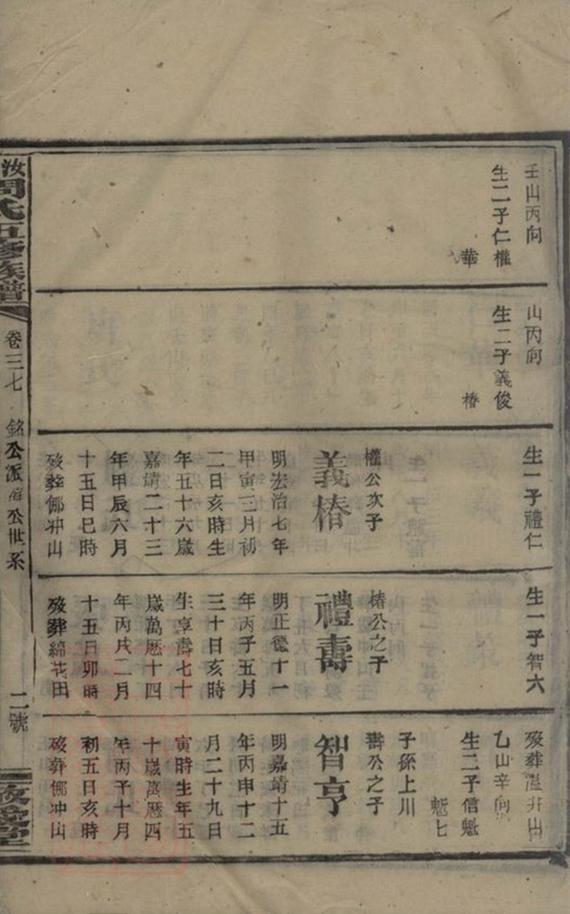 壬山丙向
生二子仁權
華
山丙向
生二子義俊
椿
生一子禮仁
權公次子
義椿
明宏治七年
甲寅三月初
二日亥時生
年五十六歲
嘉靖二十三
年甲辰六月
十五日巳時
歿葬郍冲山
生一子智六
椿公之子
禮壽
明正德十一
年丙子五月
三十日亥時
生享壽七十
歲萬曆十四
年丙戌二月
十五日卯時
歿葬綿花田
歿葬溫井山
乙山辛向
生二子信魁
魁七
子孫上川
壽公之子
智亨
明嘉靖十五
年丙申十二
月二十九日
寅時生年五
十歲萬曆四
年丙子十月
初五日亥時
歿葬郍冲山
汝 周氏五修族譜
卷三七
銘公派 公世系
二號